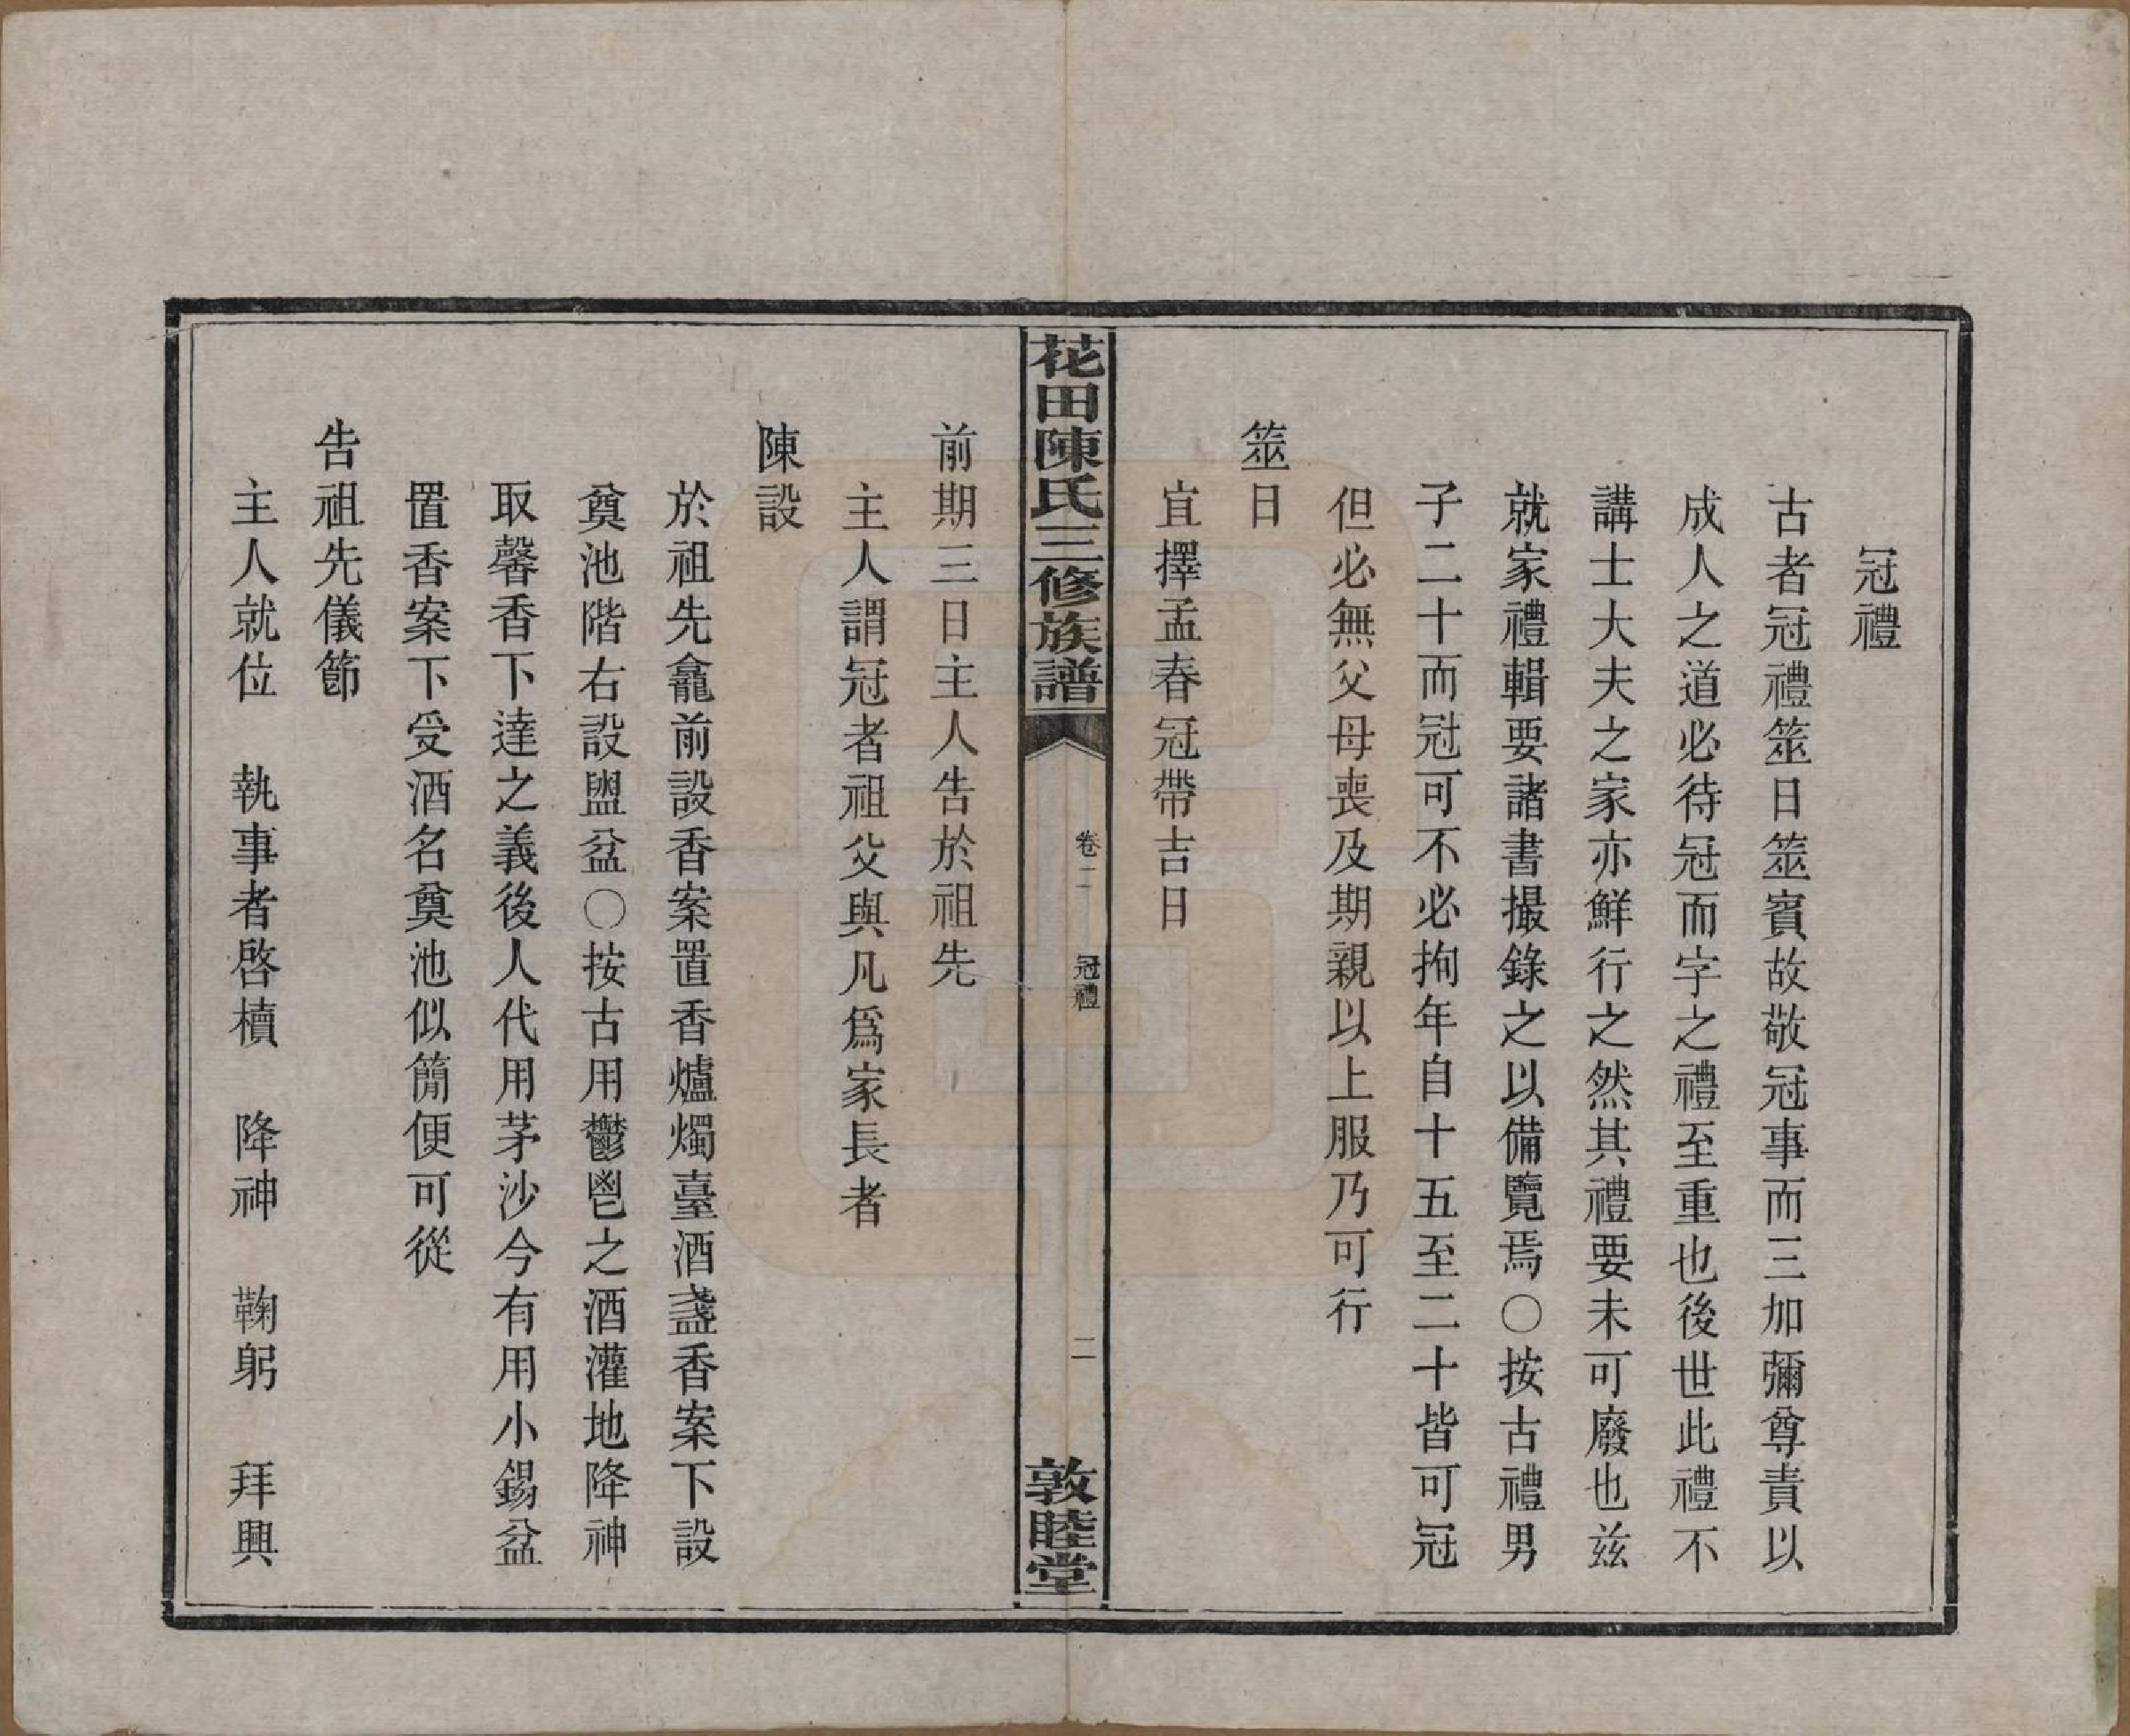 冠禮
古者冠禮筮日筮賓故敬冠事而三加彌尊責以
成人之道必待冠而字之禮至重也後世此禮不
講士大夫之家亦鮮行之然其禮要未可廢也茲
就家禮輯要諸書撮錄之以備覽焉〇按古禮男
子二十而冠可不必拘年自十五至二十皆可冠
但必無父母喪及期親以上服乃可行
筮日
宜擇孟春冠帶吉日
花田陳氏三修族譜 卷二 冠禮 二 敦睦堂
前期三日主人告於祖先
主人謂冠者祖父與凡爲家長者
陳設
於祖先龕前設香案置香爐燭臺酒盞香案下設
奠池階右設盥盆〇按古用鬱鬯之酒灌地降神
取馨香下達之義後人代用茅沙今有用小錫盆
置香案下受酒名奠池似簡便可從
告祖先儀節
主人就位 執事者啓櫝 降神 鞠躬 拜興